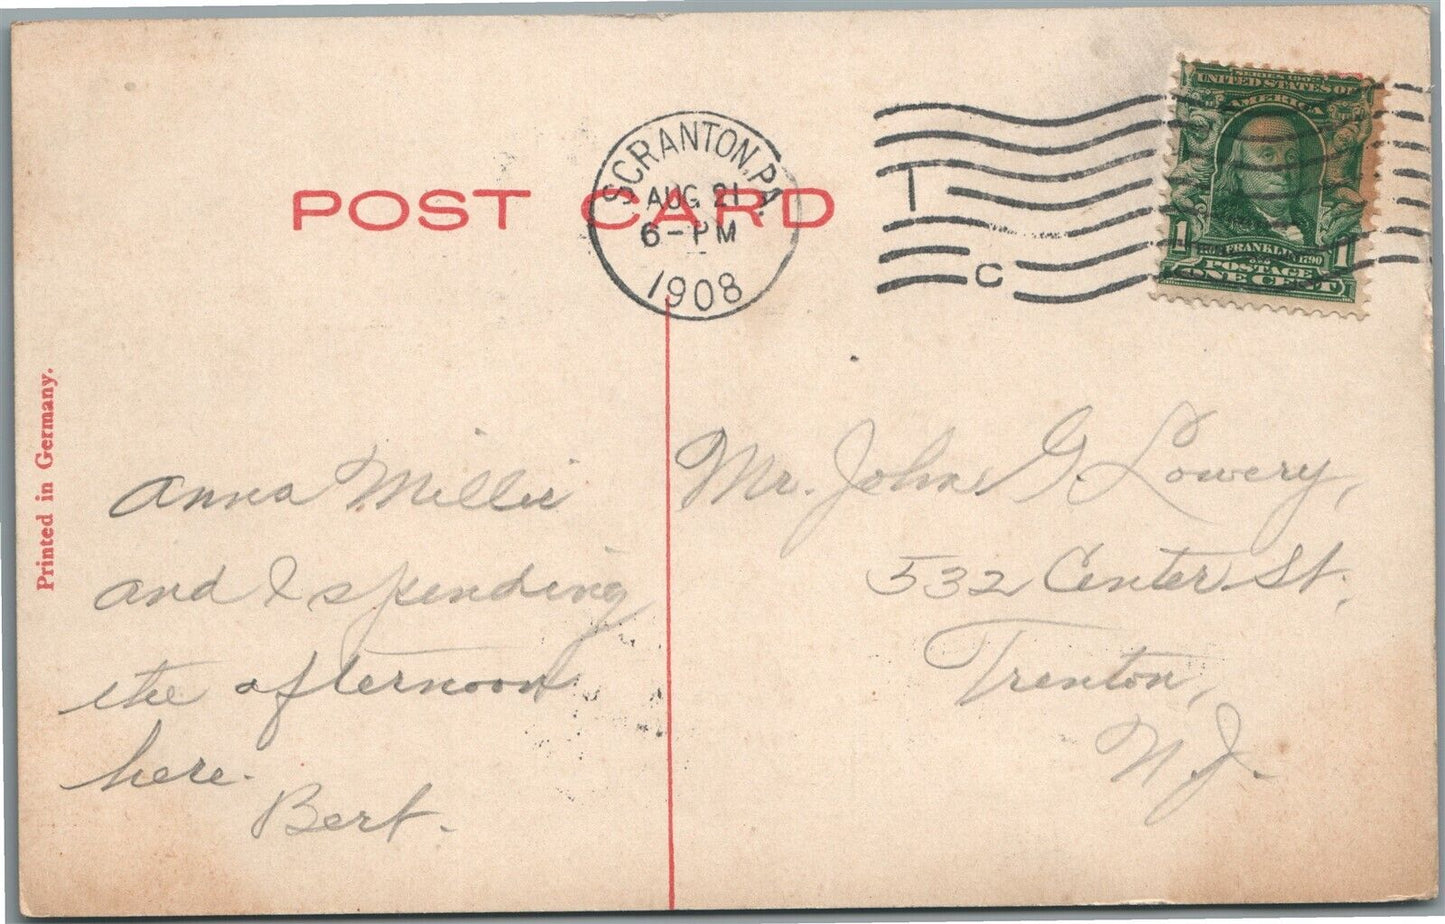 POST CARD
SCRANTON, PA.
AUG 21
6-PM
1908
1
C
SERIES 1902
UNITED STATES OF
AMERICA
1 1
FRANKLIN 1790
POSTAGE
ONE CENT
Printed in Germany.
Anna Millie
and I spending
the afternoon
here.
Bert.
Mr. John G. Lowery,
532 Center St.
Trenton,
N. J.